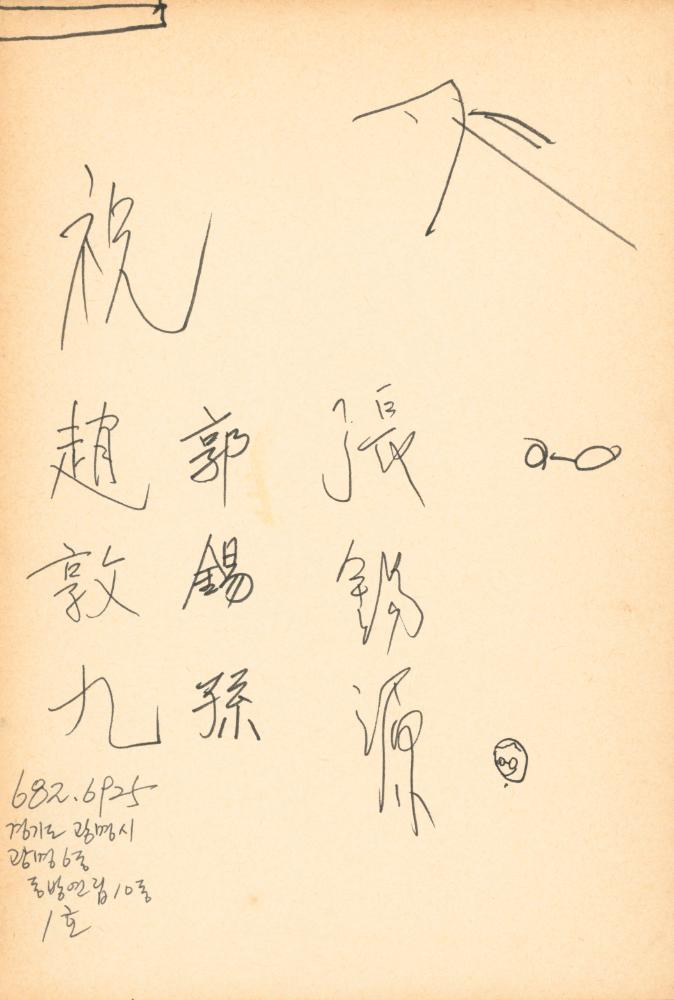 祝
張錫源
郭錫孫
趙敦九
682.6925
경기도 광명시
광명6동
동방연립10동
1호